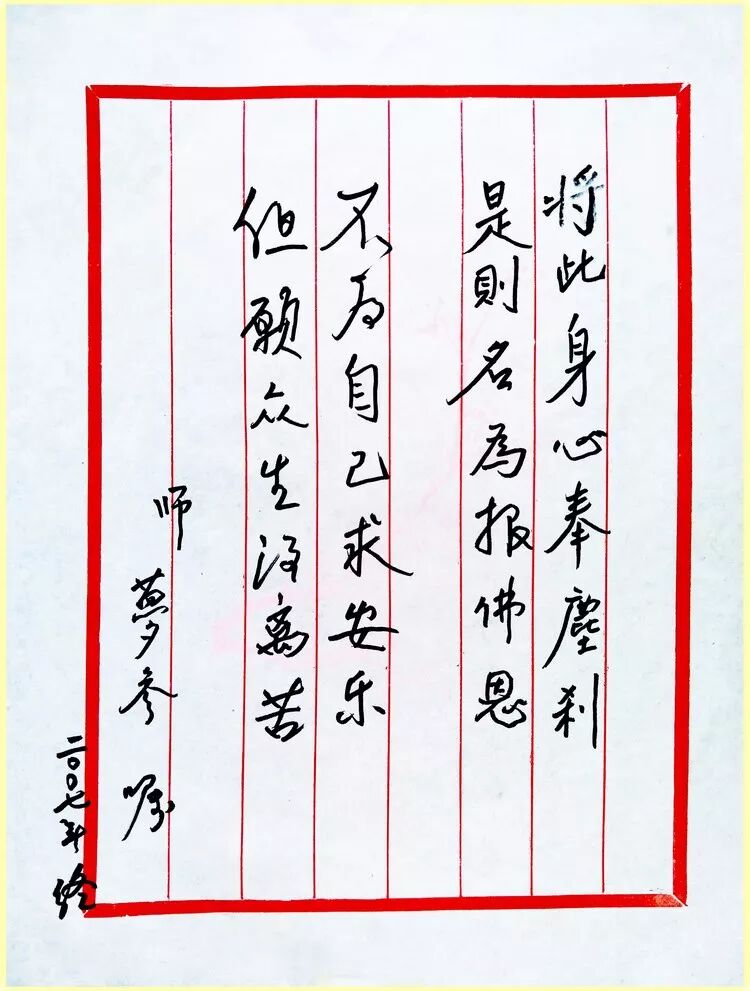 将此身心奉塵刹
是則名為报佛恩
不为自己求安乐
但願众生得离苦
师
夢参 嘱
二〇〇七年终